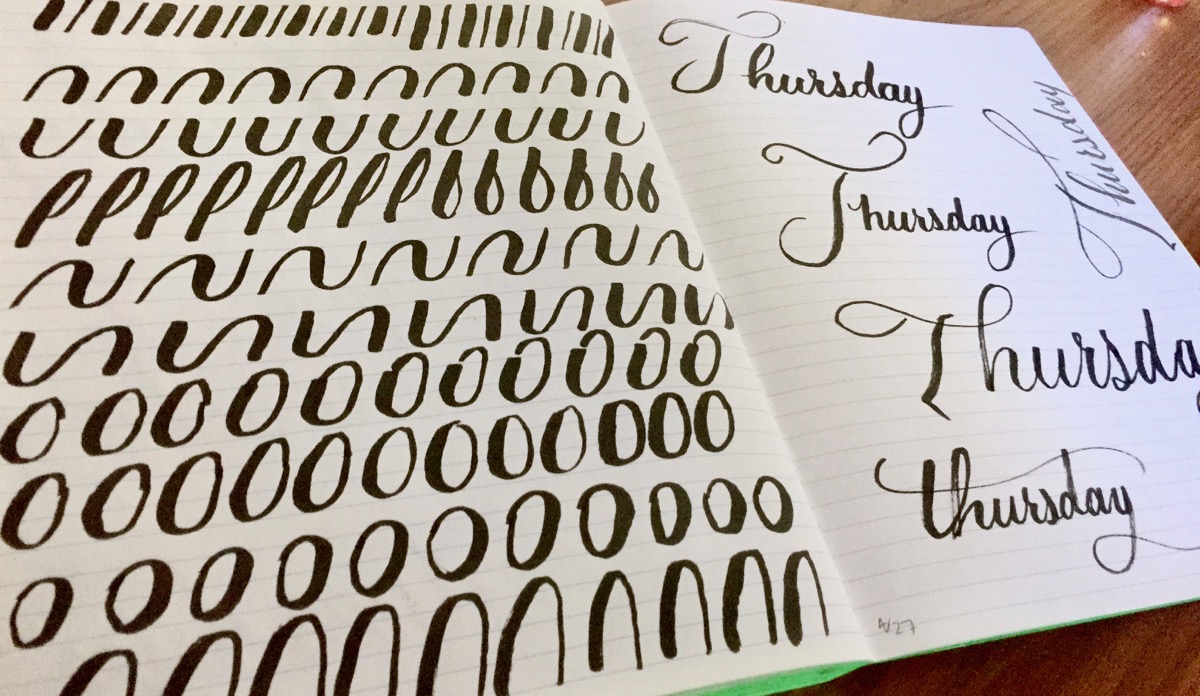 Thursday
Thursday
Thursday
Thursda
thursday